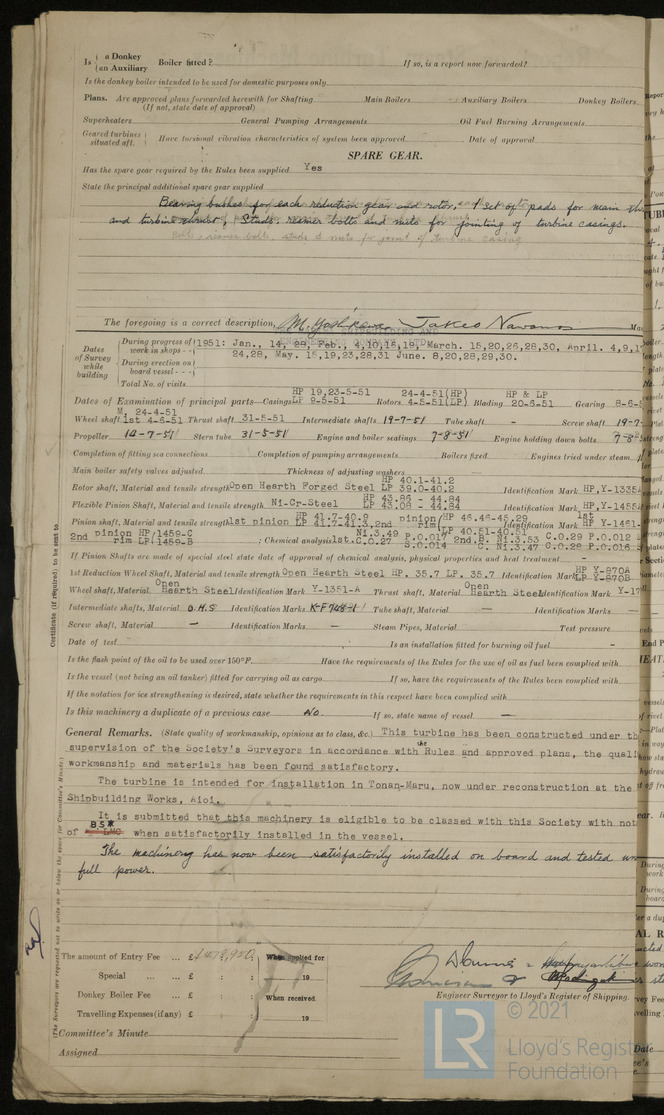 Is { a Donkey / an Auxiliary } Boiler fitted? If so, is a report now forwarded?
Is the donkey boiler intended to be used for domestic purposes only
Plans. Are approved plans forwarded herewith for Shafting Main Boilers Auxiliary Boilers Donkey Boilers
(If not, state date of approval)
Superheaters General Pumping Arrangements Oil Fuel Burning Arrangements
Geared turbines situated aft. } Have torsional vibration characteristics of system been approved Date of approval
SPARE GEAR.
Has the spare gear required by the Rules been supplied Yes
State the principal additional spare gear supplied
Bearing bushes for each reduction gear and rotor, 1 set of pads for main
and turbine thrust, Studs, reamer bolts and nuts for jointing of turbine casings.
The foregoing is a correct description,
Dates of Survey while building
During progress of work in shops - - 1951: Jan., 14, 28, Feb., 4,10,16,19, March. 15,20,26,28,30, April. 4,9,1
During erection on board vessel - - - 24,28, May. 15,19,23,28,31 June. 8,20,28,29,30.
Total No. of visits
Dates of Examination of principal parts—Casings HP 19,23-5-51 LP 9-5-51 Rotors 24-4-51(HP) 4-5-51(LP) Blading HP & LP 20-6-51 Gearing 8-6-5
Wheel shaft M. 24-4-51 1st 4-6-51 Thrust shaft 31-5-51 Intermediate shafts 19-7-51 Tube shaft - Screw shaft 19-7-
Propeller 14-7-51 Stern tube 31-5-51 Engine and boiler seatings 7-8-51 Engine holding down bolts 7-8-
Completion of fitting sea connections Completion of pumping arrangements Boilers fixed Engines tried under steam
Main boiler safety valves adjusted Thickness of adjusting washers
Rotor shaft, Material and tensile strength Open Hearth Forged Steel HP 40.1-41.2 LP 39.0-40.2 Identification Mark HP,Y-1335A
Flexible Pinion Shaft, Material and tensile strength Ni-Cr-Steel HP 43.86 - 44.84 LP 43.08 - 44.84 Identification Mark HP,Y-1455A
Pinion shaft, Material and tensile strength 1st pinion HP 41.7-40.9 LP 41.7-41.3, 2nd pinion/HP 46.46-45.29 rim LP 40.51-40 Identification Mark 1st HP Y-1461-
2nd pinion HP/1459-C rim LP/1459-B ; Chemical analysis 1st. Ni.3.49 C.0.27 P.0.017 S.0.014 2nd. B. Ni.3.53 C. Ni.3.47 C 0.29 P.0.012 C 0.28 P.0.016
If Pinion Shafts are made of special steel state date of approval of chemical analysis, physical properties and heat treatment -
1st Reduction Wheel Shaft, Material and tensile strength Open Hearth Steel HP. 35.7 LP. 35.7 Identification Mark HP Y-870A LP Y-870B
Wheel shaft, Material Open Hearth Steel Identification Mark Y-1351-A Thrust shaft, Material Open Hearth Steel Identification Mark Y-17
Intermediate shafts, Material O.H.S Identification Marks Tube shaft, Material — Identification Marks —
Screw shaft, Material — Identification Marks — Steam Pipes, Material Test pressure
Date of test Is an installation fitted for burning oil fuel -
Is the flash point of the oil to be used over 150°F. Have the requirements of the Rules for the use of oil as fuel been complied with
Is the vessel (not being an oil tanker) fitted for carrying oil as cargo If so, have the requirements of the Rules been complied with
If the notation for ice strengthening is desired, state whether the requirements in this respect have been complied with
Is this machinery a duplicate of a previous case No. If so, state name of vessel —
General Remarks. (State quality of workmanship, opinions as to class, &c.) This turbine has been constructed under th
supervision of the Society's Surveyors in accordance with the Rules and approved plans, the quali
workmanship and materials has been found satisfactory.
The turbine is intended for installation in Tonan-Maru, now under reconstruction at the
Shipbuilding Works, Aioi.
It is submitted that this machinery is eligible to be classed with this Society with not
of BS* LMC when satisfactorily installed in the vessel.
The machinery has now been satisfactorily installed on board and tested un
full power.
The amount of Entry Fee ... £ When applied for
Special ... ... £ : : 19
Donkey Boiler Fee ... £ : : When received
Travelling Expenses (if any) £ : : 19
Engineer Surveyor to Lloyd's Register of Shipping.
Committee's Minute
Assigned
Certificate (if required) to be sent to
(The Surveyors are requested not to write on or below the space for Committee's Minute.)
© 2021
LR
Lloyd's Regist
Foundation